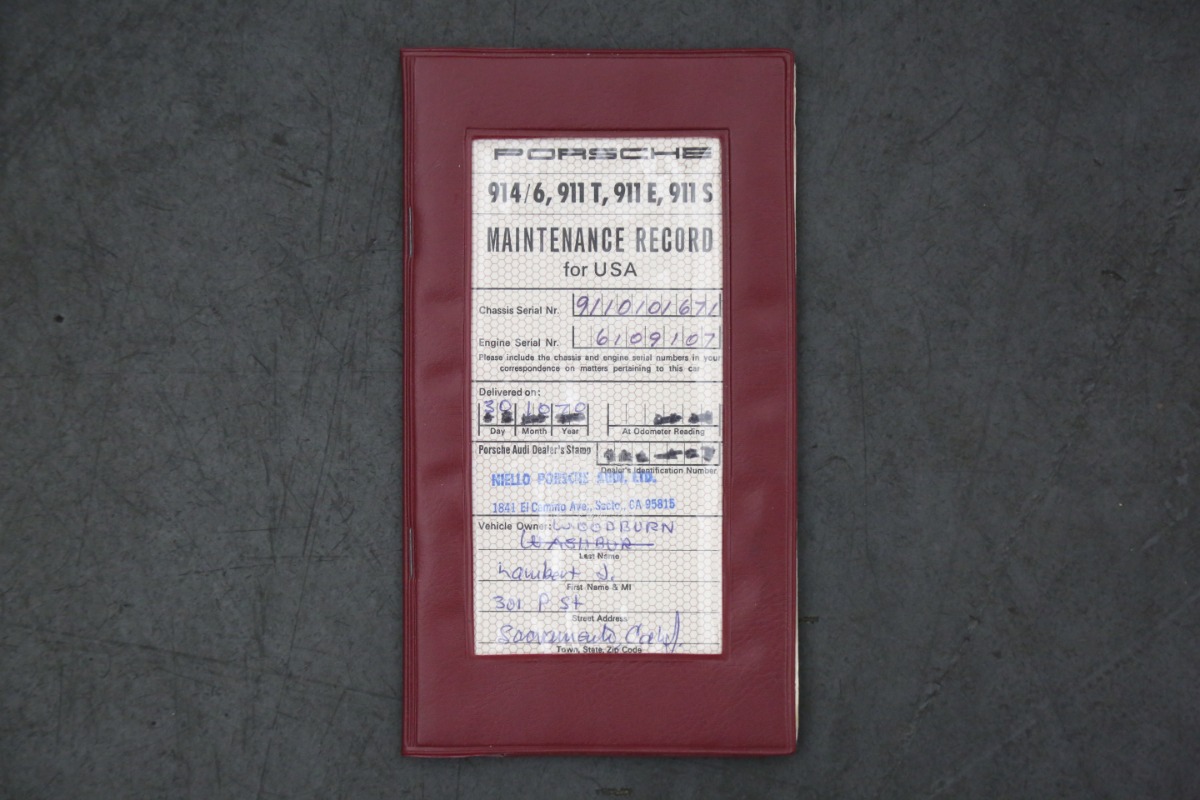 PORSCHE
914/6, 911 T, 911 E, 911 S
MAINTENANCE RECORD
for USA
Chassis Serial Nr. 9110101671
Engine Serial Nr. 6109107
Please include the chassis and engine serial numbers in your
correspondence on matters pertaining to this car
Delivered on:
30 10 70
Day Month Year At Odometer Reading
Porsche Audi Dealer's Stamp
Dealer's Identification Number
NIELLO PORSCHE AUDI, LTD.
1841 El Camino Ave., Sacto., CA 95815
Vehicle Owner: WOODBURN
WASHBUR
Last Name
Lambert J.
First Name & MI
301 P St
Street Address
Sacramento, Calif.
Town, State, Zip Code